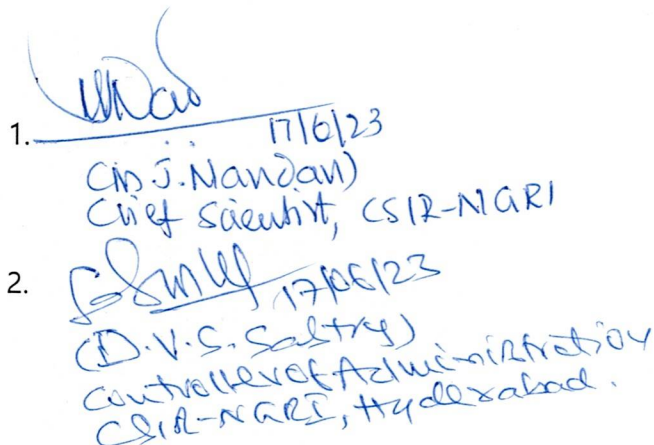 1. 17/6/23
(M J. Nandan)
Chief Scientist, CSIR-NGRI
2. 17/06/23
(D.V.S. Sastry)
Controller of Administration
CSIR-NGRI, Hyderabad.